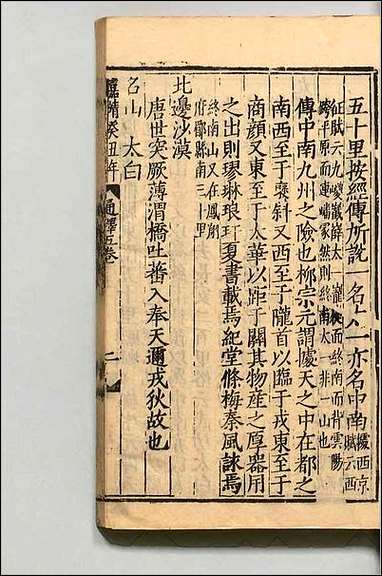 五十里按經傳所說一名太一亦名中南據西京
賦云西
征賦云九嵕巀嶭太一巃嵸面終南而背雲陽
跨平原而連嶓冢然則終南太一非一山也
傳中南九州之險也柳宗元謂據天之中在都之
南西至于褒斜又西至于隴首以臨于戎東至于
商顏又東至于太華以距于關其物產之厚器用
之出則璆琳琅玕夏書載焉紀堂條梅秦風詠焉
終南山又在鳳翔
府郿縣南三十里
北邊沙漠
唐世突厥薄渭橋吐蕃入奉天邇戎狄故也
名山 太白
嘉靖癸丑年 通釋五卷 二